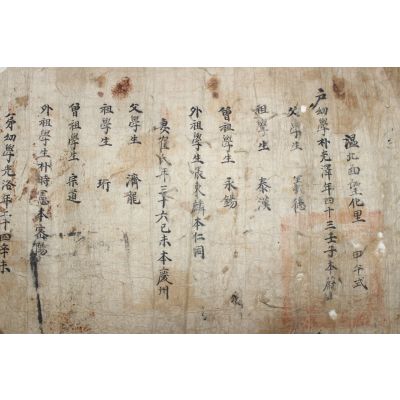 溫北面堂化里 甲午式
戶幼學朴光澤年四十三壬子本
父學生 義德
祖學生 泰漢
曾祖學生 永錫
外祖學生張東麟本仁同
妻崔氏年三十六己未本慶州
父學生 濟龍
祖學生 珩
曾祖學生 宗道
外祖學生朴時憲本密陽
弟幼學光洛年二十四辛未